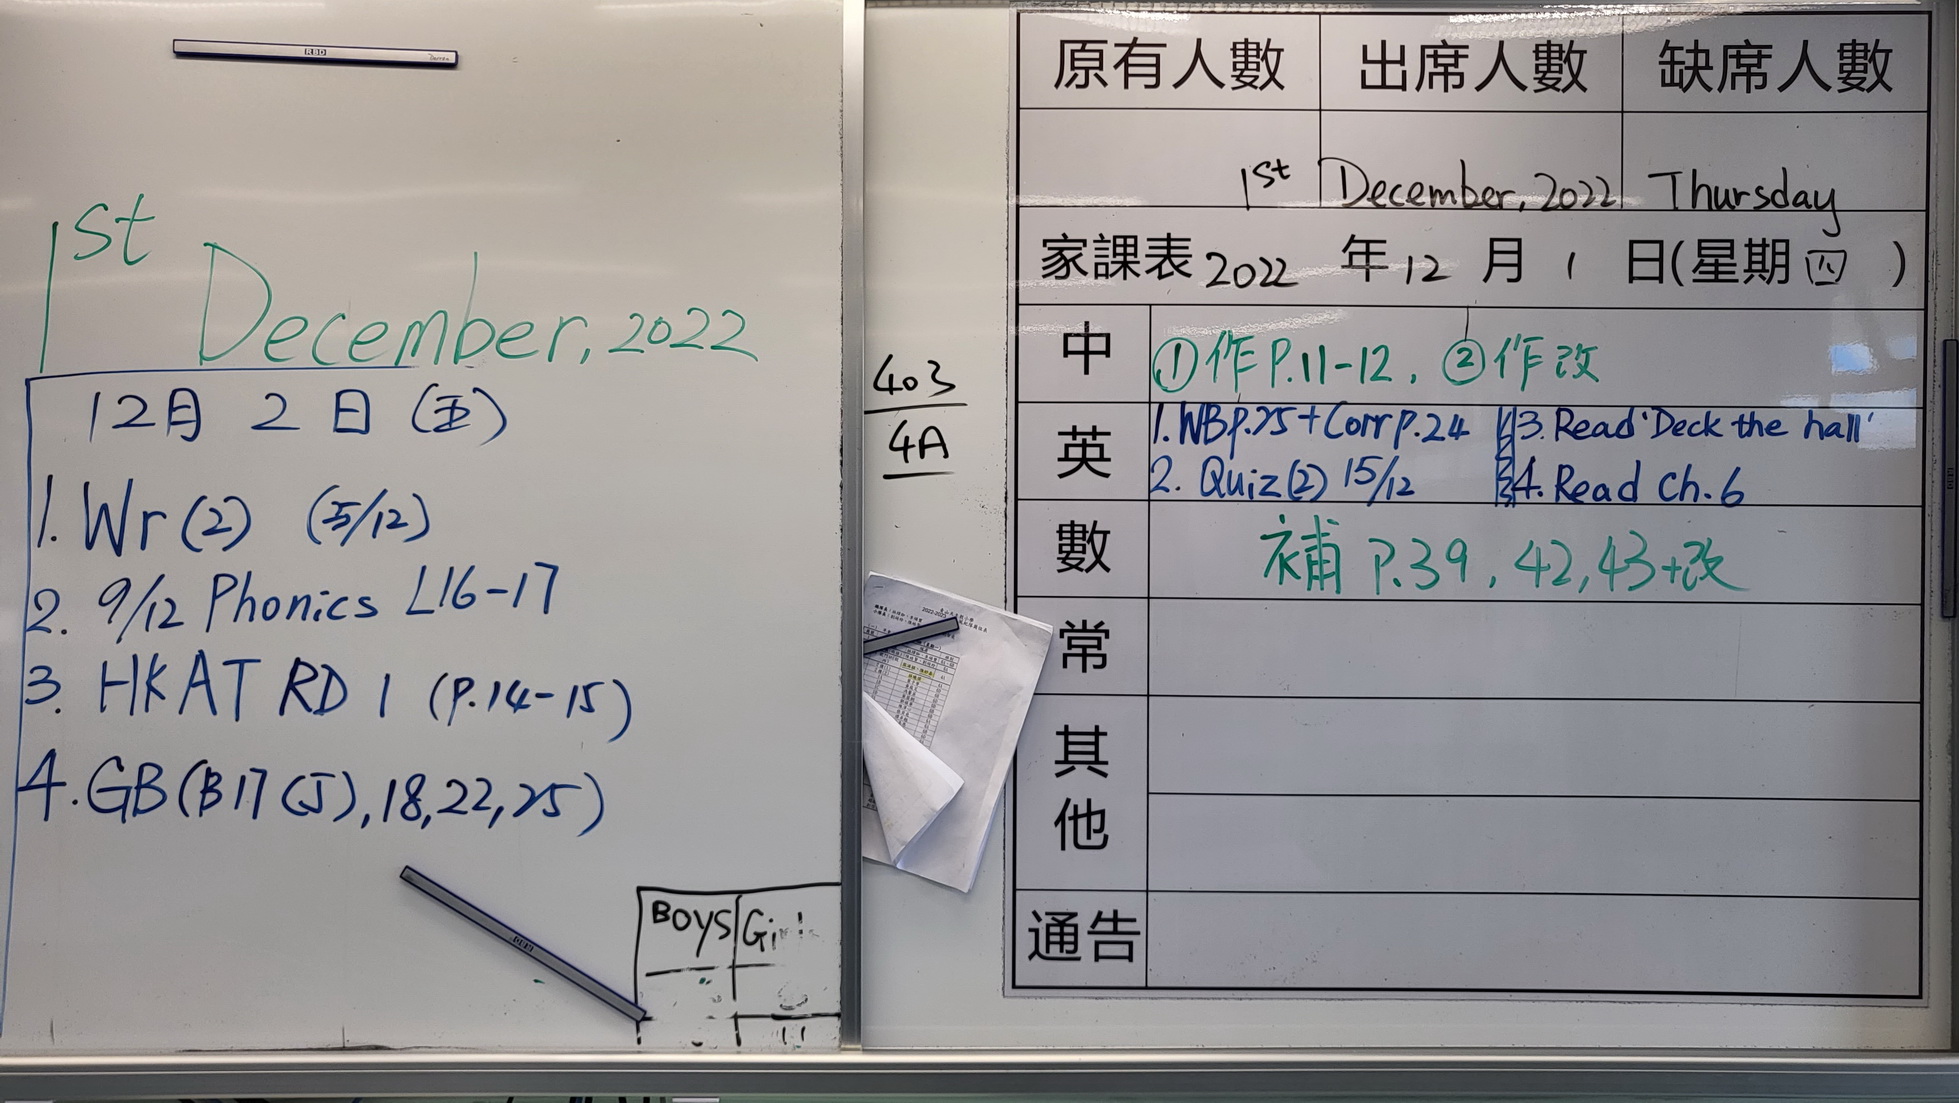 1st December, 2022
12月 2 日 (五)
1. Wr (2) (5/12)
2. 9/12 Phonics L16-17
3. HKAT RD 1 (P.14-15)
4. GB (B17 (J), 18, 22, 25)
BOYS Girls
403
4A
原有人數 出席人數 缺席人數
1st December, 2022 Thursday
家課表 2022 年 12 月 1 日(星期四)
中 ①作 P.11-12, ②作改
英 1. WB p.25 + Corr p.24 3. Read 'Deck the hall'
2. Quiz (2) 15/12 4. Read Ch. 6
數 補 P.39, 42, 43+改
常
其他
通告